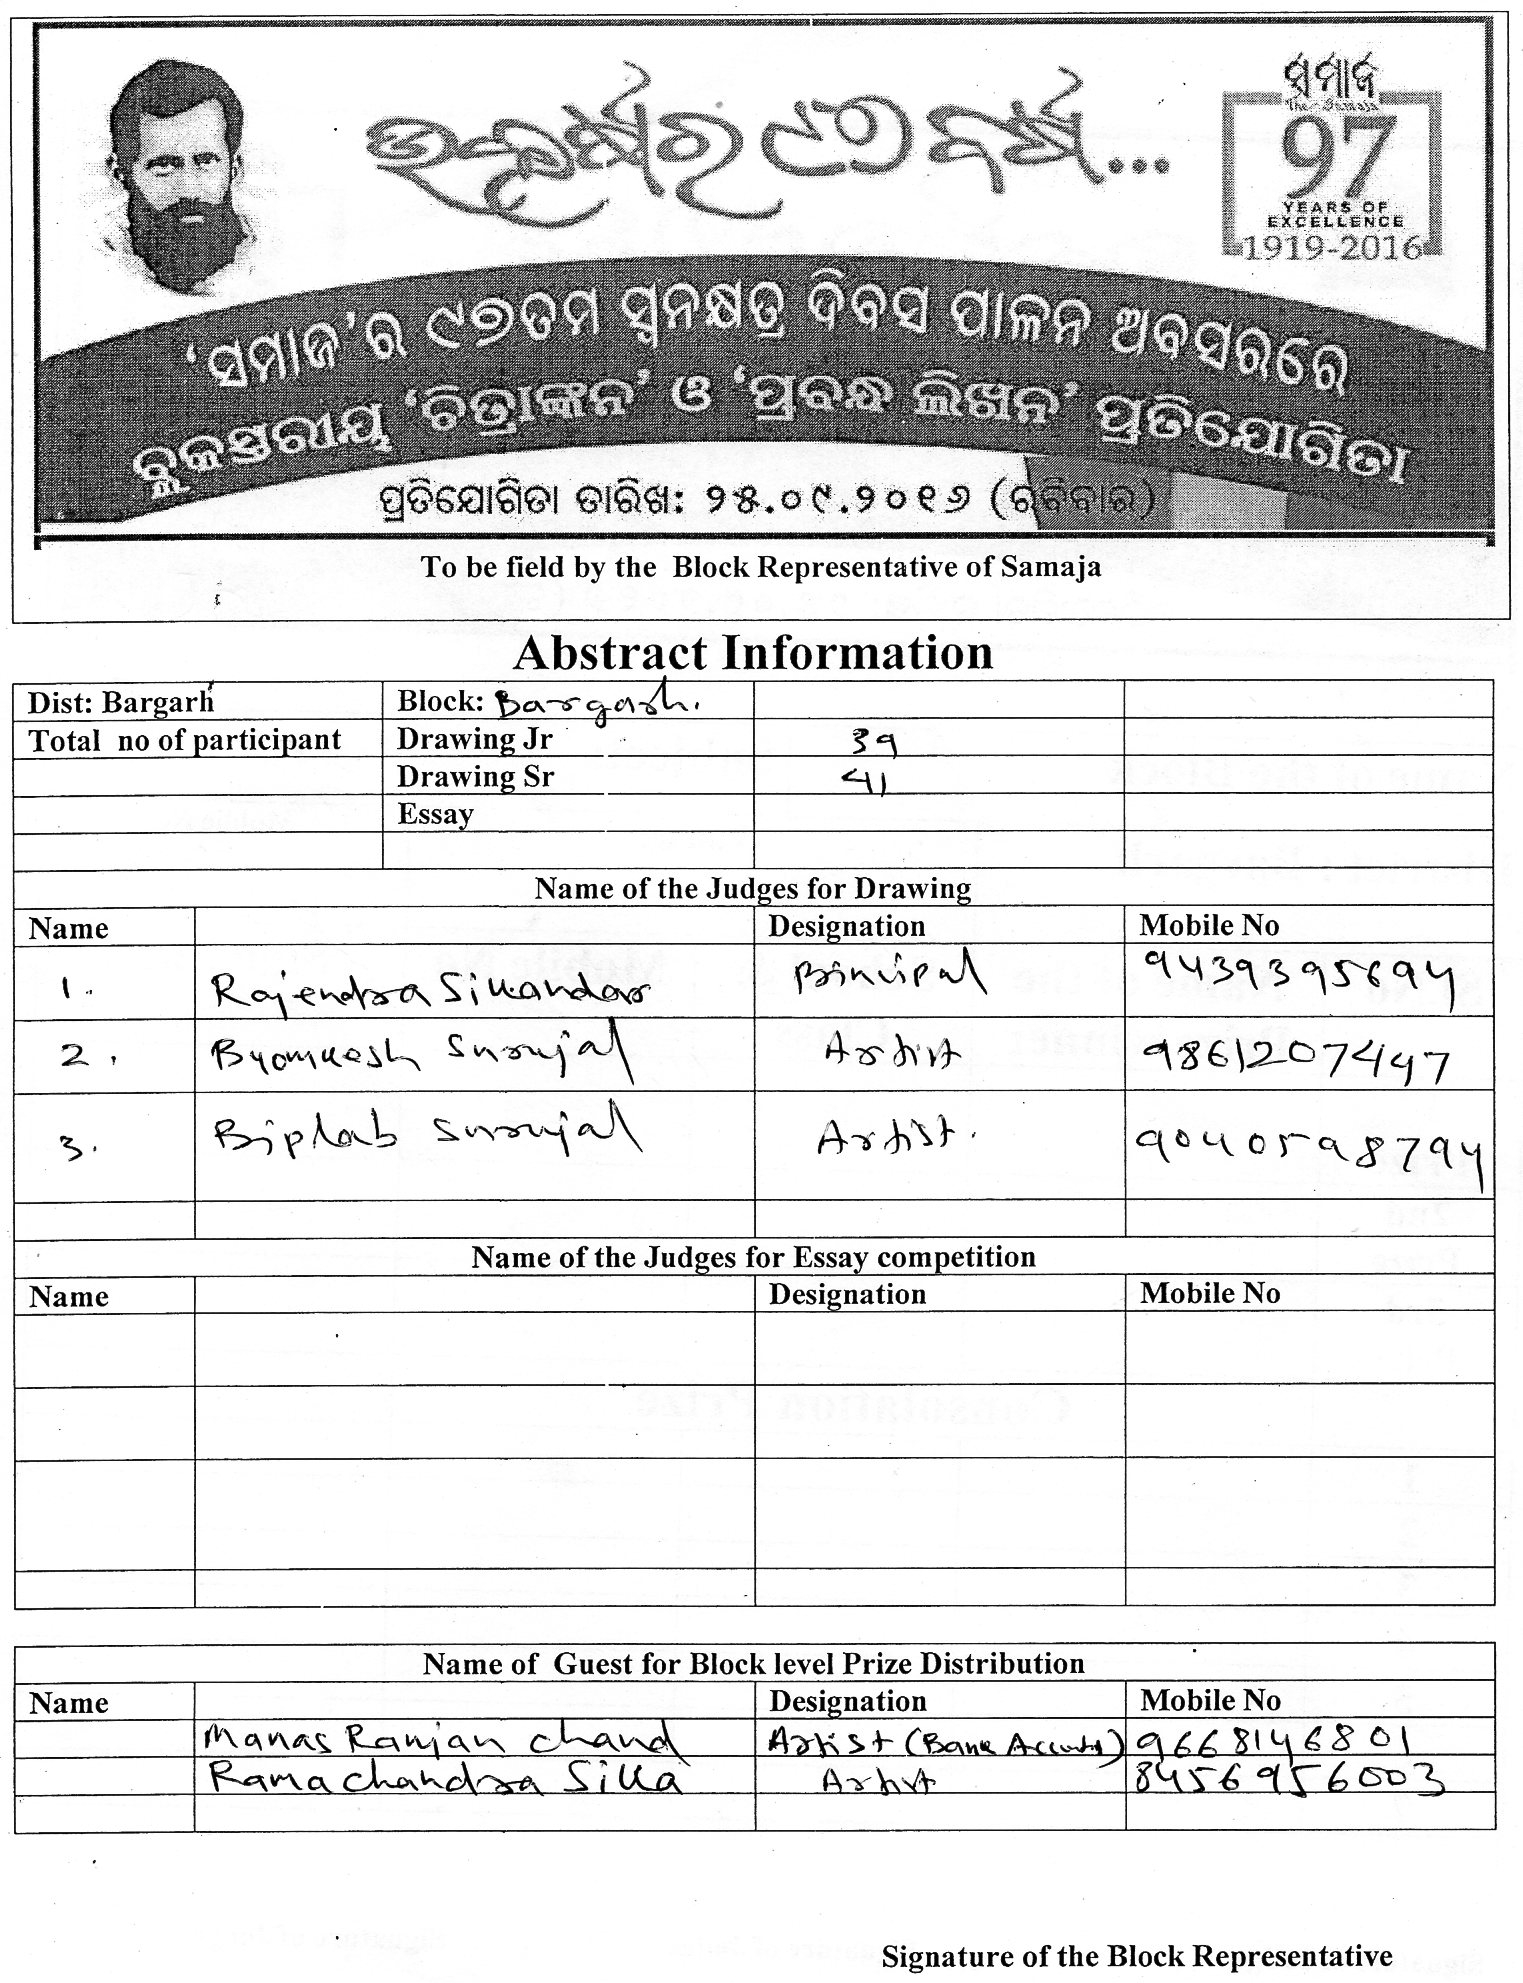 ଉତ୍କର୍ଷର ୯୭ ବର୍ଷ...
ସମାଜ
The Samaja
97
YEARS OF
EXCELLENCE
1919-2016
‘ସମାଜ’ର ୯୭ତମ ସ୍ବନକ୍ଷତ୍ର ଦିବସ ପାଳନ ଅବସରରେ
ବ୍ଲକସ୍ତରୀୟ ‘ଚିତ୍ରାଙ୍କନ’ ଓ ‘ପ୍ରବନ୍ଧ ଲିଖନ’ ପ୍ରତିଯୋଗିତା
ପ୍ରତିଯୋଗିତା ତାରିଖ: ୨୫.୦୯.୨୦୧୬ (ରବିବାର)
To be field by the Block Representative of Samaja
Abstract Information
Dist: Bargarh Block: Bargarh.
Total no of participant Drawing Jr 39
Drawing Sr 41
Essay
Name of the Judges for Drawing
Name Designation Mobile No
1. Rajendra Sikandar Principal 9439395694
2. Byomkesh Surujal Artist 9861207447
3. Biplab Surujal Artist. 9040598794
Name of the Judges for Essay competition
Name Designation Mobile No
Name of Guest for Block level Prize Distribution
Name Designation Mobile No
Manas Ranjan Chand Artist (Bank Accounts) 9668146801
Ramachandra Sika Artist 8456956003
Signature of the Block Representative